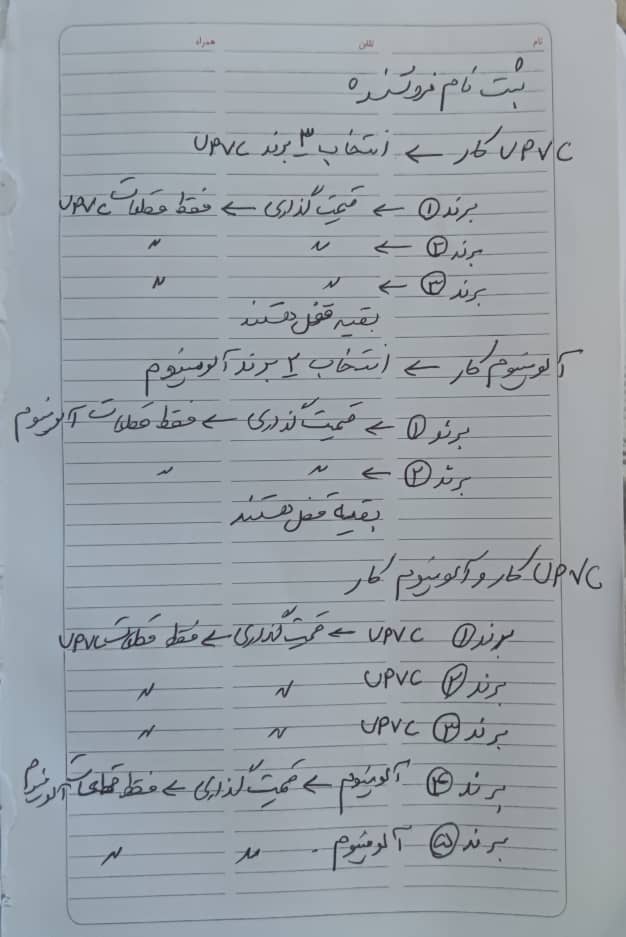 نام تلفن همراه
ثبت نام فروشنده
UPVC کار ← انتخاب ۳ برند UPVC
برند ① ← قیمت گذاری ← فقط قطعات UPVC
برند ② ← 〃 〃
برند ③ ← 〃 〃
بقیه قفل هستند
آلومینیوم کار ← انتخاب ۲ برند آلومینیوم
برند ① ← قیمت گذاری ← فقط قطعات آلومینیوم
برند ② ← 〃 〃
بقیه قفل هستند
UPVC کار و آلومینیوم کار
برند ① UPVC ← قیمت گذاری ← فقط قطعات UPVC
برند ② UPVC 〃 〃
برند ③ UPVC 〃 〃
برند ④ آلومینیوم ← قیمت گذاری ← فقط قطعات آلومینیوم
برند ⑤ آلومینیوم 〃 〃